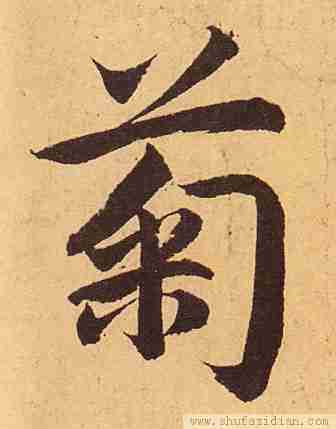 菊
www.shufazidian.com